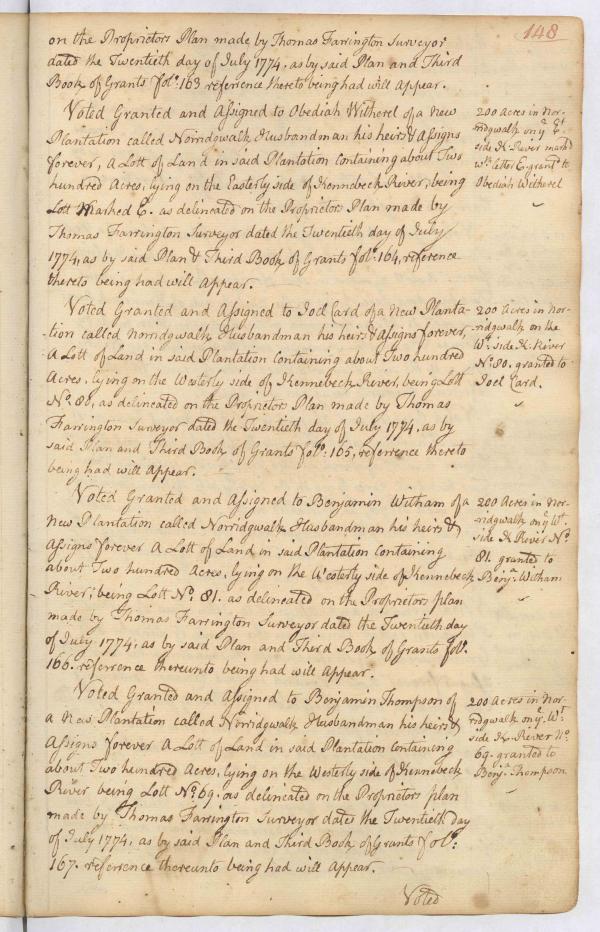 148
on the Proprietors Plan made by Thomas Farrington Surveyor
dated the Twentieth day of July 1774, as by said Plan and Third
Book of Grants fol.o 163 reference thereto being had will Appear.
Voted Granted and Assigned to Obediah Witherel of a New
Plantation called Norridgwalk, Husbandman his heirs & Assigns
forever, A Lott of Land in said Plantation Containing about Two
hundred Acres, lying on the Easterly side of Kennebeck River, being
Lott Marked E. as delineated on the Proprietors Plan made by
Thomas Farrington Surveyor dated the Twentieth day of July
1774, as by said Plan & Third Book of Grants fol.o 164, reference
thereto being had will Appear.
200 Acres in Nor-
ridgwalk on y.e E.t
side K. River mark'd
w.th letter E. grant.d to
Obediah Witherel
Voted Granted and Assigned to Joel Card of a New Planta-
-tion called Norridgwalk Husbandman his heirs & Assigns forever,
A Lott of Land in said Plantation Containing about Two hundred
Acres, lying on the Westerly side of Kennebeck River, being Lott
N.o 80, as delineated on the Proprietors Plan made by Thomas
Farrington Surveyor dated the Twentieth day of July 1774, as by
said Plan and Third Book of Grants fol.o 165, reference thereto
being had will Appear.
200 Acres in Nor-
-ridgwalk on the
W.t side K. River
N.o 80. granted to
Joel Card.
Voted Granted and Assigned to Benjamin Witham of a
New Plantation called Norridgwalk Husbandman his heirs &
Assigns forever A Lott of Land in said Plantation Containing
about Two hundred Acres, lying on the Westerly side of Kennebeck
River, being Lott N.o 81. as delineated on the Proprietors plan
made by Thomas Farrington Surveyor dated the Twentieth day
of July 1774, as by said Plan and Third Book of Grants fol.o
166. referrence thereunto being had will Appear.
200 Acres in Nor-
-ridgwalk on y.e W.t
side K River N.o
81. granted to
Benj.a Witham
Voted Granted and Assigned to Benjamin Thompson of
a New Plantation called Norridgwalk Husbandman his heirs &
Assigns forever A Lott of Land in said Plantation Containing
about Two hundred Acres, lying on the Westerly side of Kennebeck
River being Lott N.o 69. as delineated on the Proprietors plan
made by Thomas Farrington Surveyor dated the Twentieth day
of July 1774, as by said Plan and Third Book of Grants fol.o
167. referrence thereunto being had will Appear.
200 Acres in Nor-
ridgwalk on y.e W.t
side K. River N.o
69. granted to
Benj.a Thompson
Voted